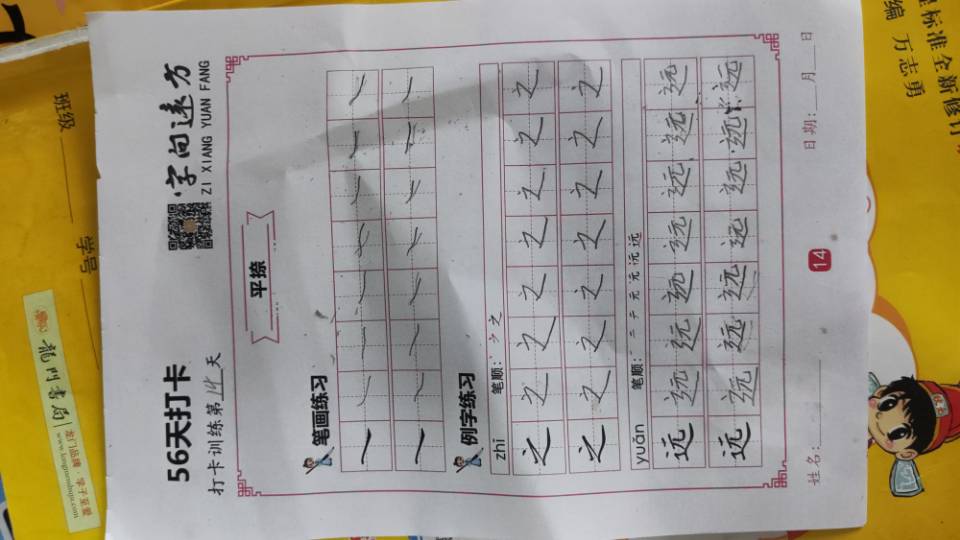 56天打卡
打卡训练第14天
字向远方
ZI XIANG YUAN FANG
平捺
笔画练习
例字练习
zhi
笔顺：丶㇇之
之 之 之 之 之 之 之 之
之 之 之 之 之 之 之 之
yuǎn
笔顺：二 テ 元 元 沅 远
远 远 远 远 远 远 远 远
远 远 远 远 远 远 远 远
姓名：
日期： 月 日
14
班级
学号
课标准全新修订
编 万志勇